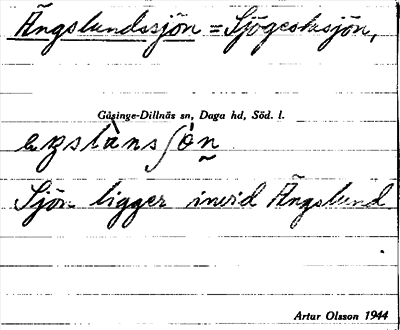 Ängslundssjön = Sjögestasjön,
Gåsinge-Dillnäs sn, Daga hd, Söd. l.
Sjön ligger invid Ängslund
Artur Olsson 1944